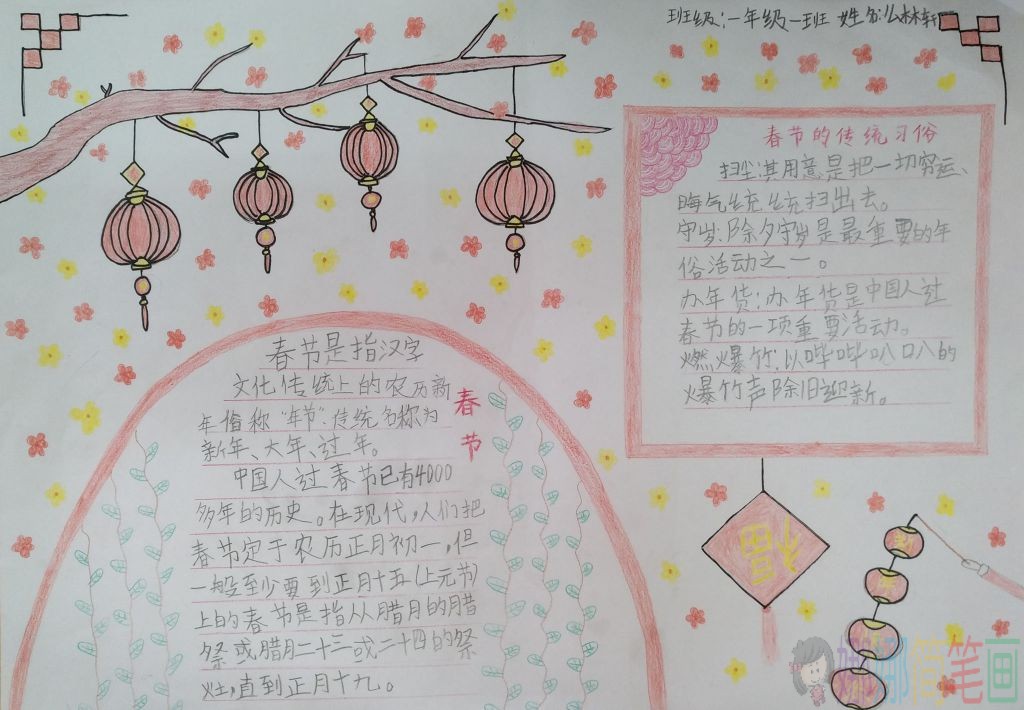 班级：一年级一班 姓名：么林轩
春节的传统习俗
扫尘：其用意是把一切穷运、
晦气统统扫出去。
守岁：除夕守岁是最重要的年
俗活动之一。
办年货：办年货是中国人过
春节的一项重要活动。
燃爆竹：以哔哔叭叭的
爆竹声除旧迎新。
春节是指汉字
文化传统上的农历新
年俗称“年节”，传统名称为
新年、大年、过年。
中国人过春节已有4000
多年的历史。在现代，人们把
春节定于农历正月初一，但
一般至少要到正月十五（上元节）
上的春节是指从腊月的腊
祭或腊月二十三或二十四的祭
灶，直到正月十九。
春节
福
娜娜简笔画